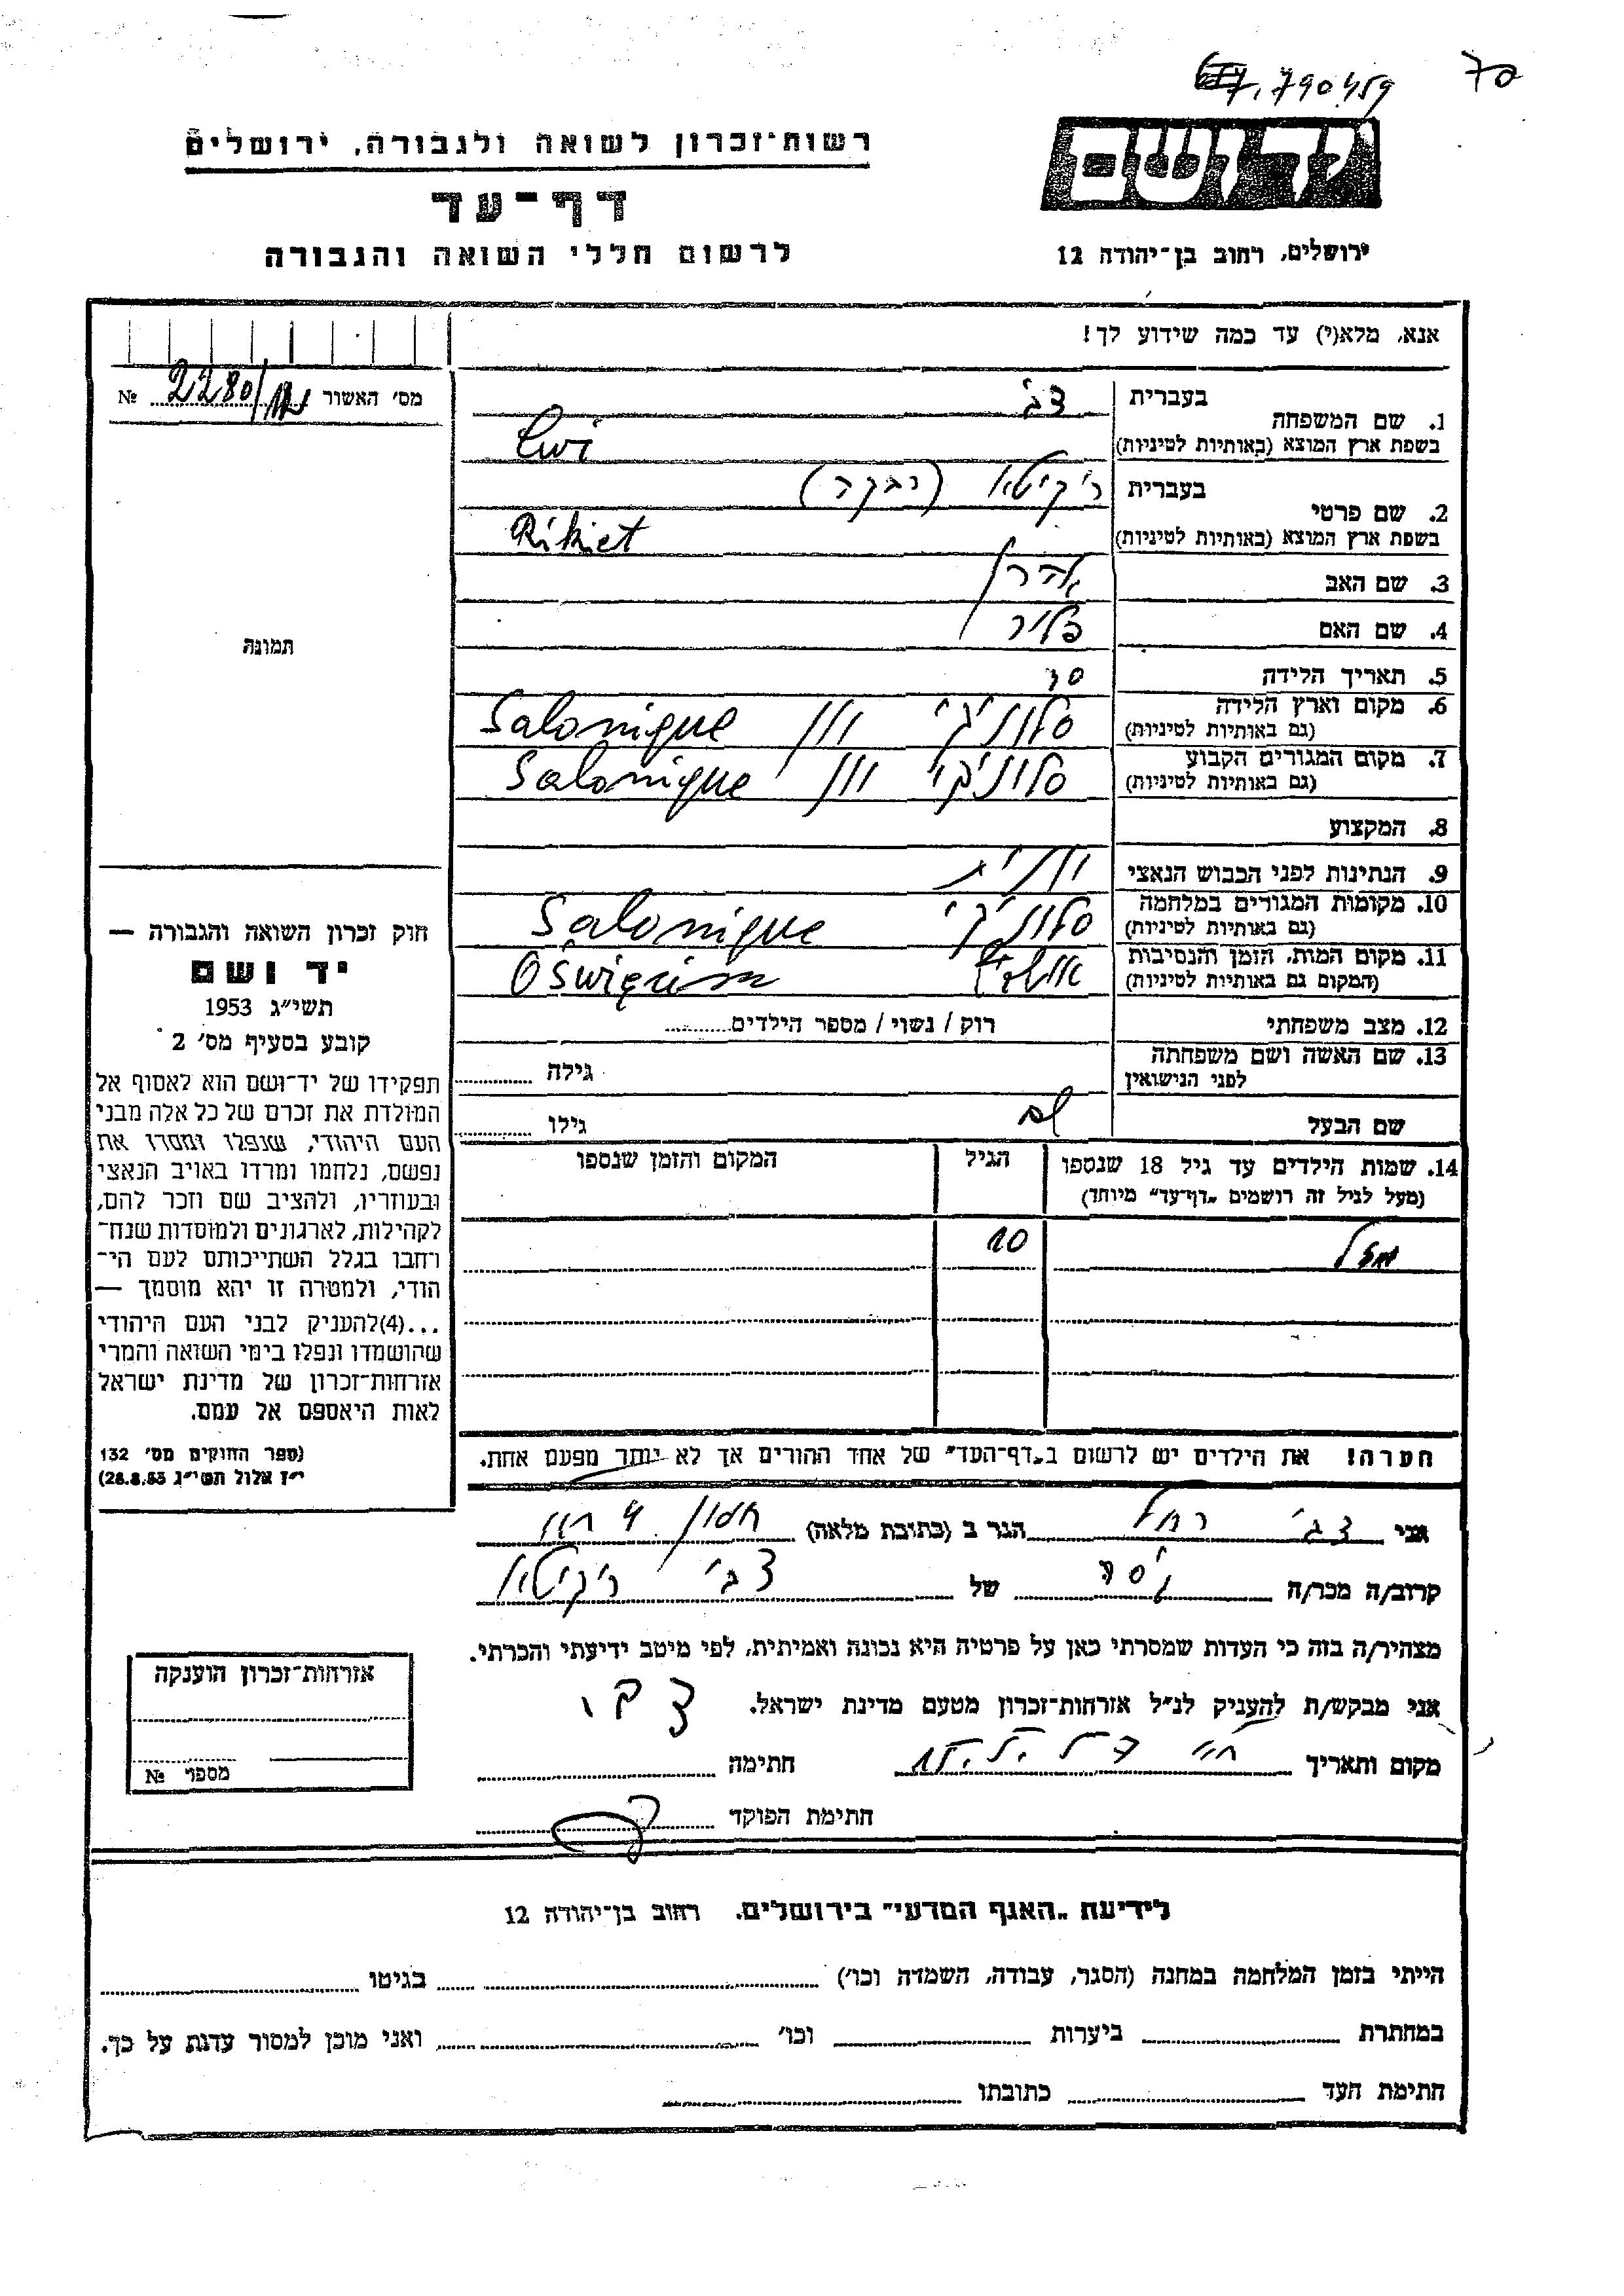 70
790459
רשות־זכרון לשואה ולגבורה, ירושלים
יד ושם
דף־עד
לרשום חללי השואה והגבורה
ירושלים, רחוב בן־יהודה 12
אנא, מלא(י) עד כמה שידוע לך!
מס׳ האשור № 2280/
1. שם המשפחה
בעברית צבי
בשפת ארץ המוצא (באותיות לטיניות) Cwi
2. שם פרטי
בעברית ריקיטא (רבקה)
בשפת ארץ המוצא (באותיות לטיניות) Rikiet
3. שם האב אהרן
4. שם האם
5. תאריך הלידה
6. מקום וארץ הלידה סלוניקי יון Salonique
(גם באותיות לטיניות)
7. מקום המגורים הקבוע סלוניקי יון Salonique
(גם באותיות לטיניות)
8. המקצוע
9. הנתינות לפני הכבוש הנאצי יונית
10. מקומות המגורים במלחמה סלוניקי Salonique
(גם באותיות לטיניות)
11. מקום המות, הזמן והנסיבות Oświęcim
(המקום גם באותיות לטיניות)
12. מצב משפחתי רוק / נשוי / מספר הילדים
13. שם האשה ושם משפחתה
לפני הנישואין גילה
שם הבעל גילו
14. שמות הילדים עד גיל 18 שנספו הגיל המקום והזמן שנספו
(מעל לגיל זה רושמים „דף־עד״ מיוחד)
10
הערה! את הילדים יש לרשום ב„דף־העד״ של אחד ההורים אך לא יותר מפעם אחת.
תמונה
חוק זכרון השואה והגבורה —
יד ושם
תשי״ג 1953
קובע בסעיף מס׳ 2
תפקידו של יד־ושם הוא לאסוף אל
המולדת את זכרם של כל אלה מבני
העם היהודי, שנפלו ומסרו את
נפשם, נלחמו ומרדו באויב הנאצי
ובעוזריו, ולהציב שם וזכר להם,
לקהילות, לארגונים ולמוסדות שנח־
רבו בגלל השתייכותם לעם הי־
הודי, ולמטרה זו יהא מוסמך —
...(4)להעניק לבני העם היהודי
שהושמדו ונפלו בימי השואה והמרי
אזרחות־זכרון של מדינת ישראל
לאות היאספם אל עמם.
(ספר החוקים מס׳ 132
י״ז אלול תשי״ג 28.8.53)
אני צבי רחל הגר ב (כתובת מלאה)
קרוב/ה מכר/ה גיסה של צבי ריקיטא
מצהיר/ה בזה כי העדות שמסרתי כאן על פרטיה היא נכונה ואמיתית, לפי מיטב ידיעתי והכרתי.
אני מבקש/ת להעניק לנ״ל אזרחות־זכרון מטעם מדינת ישראל.
מקום ותאריך חתימה
חתימת הפוקד
אזרחות־זכרון הוענקה
מספר №
לידיעת „האגף המדעי״ בירושלים, רחוב בן־יהודה 12
הייתי בזמן המלחמה במחנה (הסגר, עבודה, השמדה וכו׳) בגיטו
במחתרת ביערות וכו׳ ואני מוכן למסור עדות על כך.
חתימת העד כתובתו